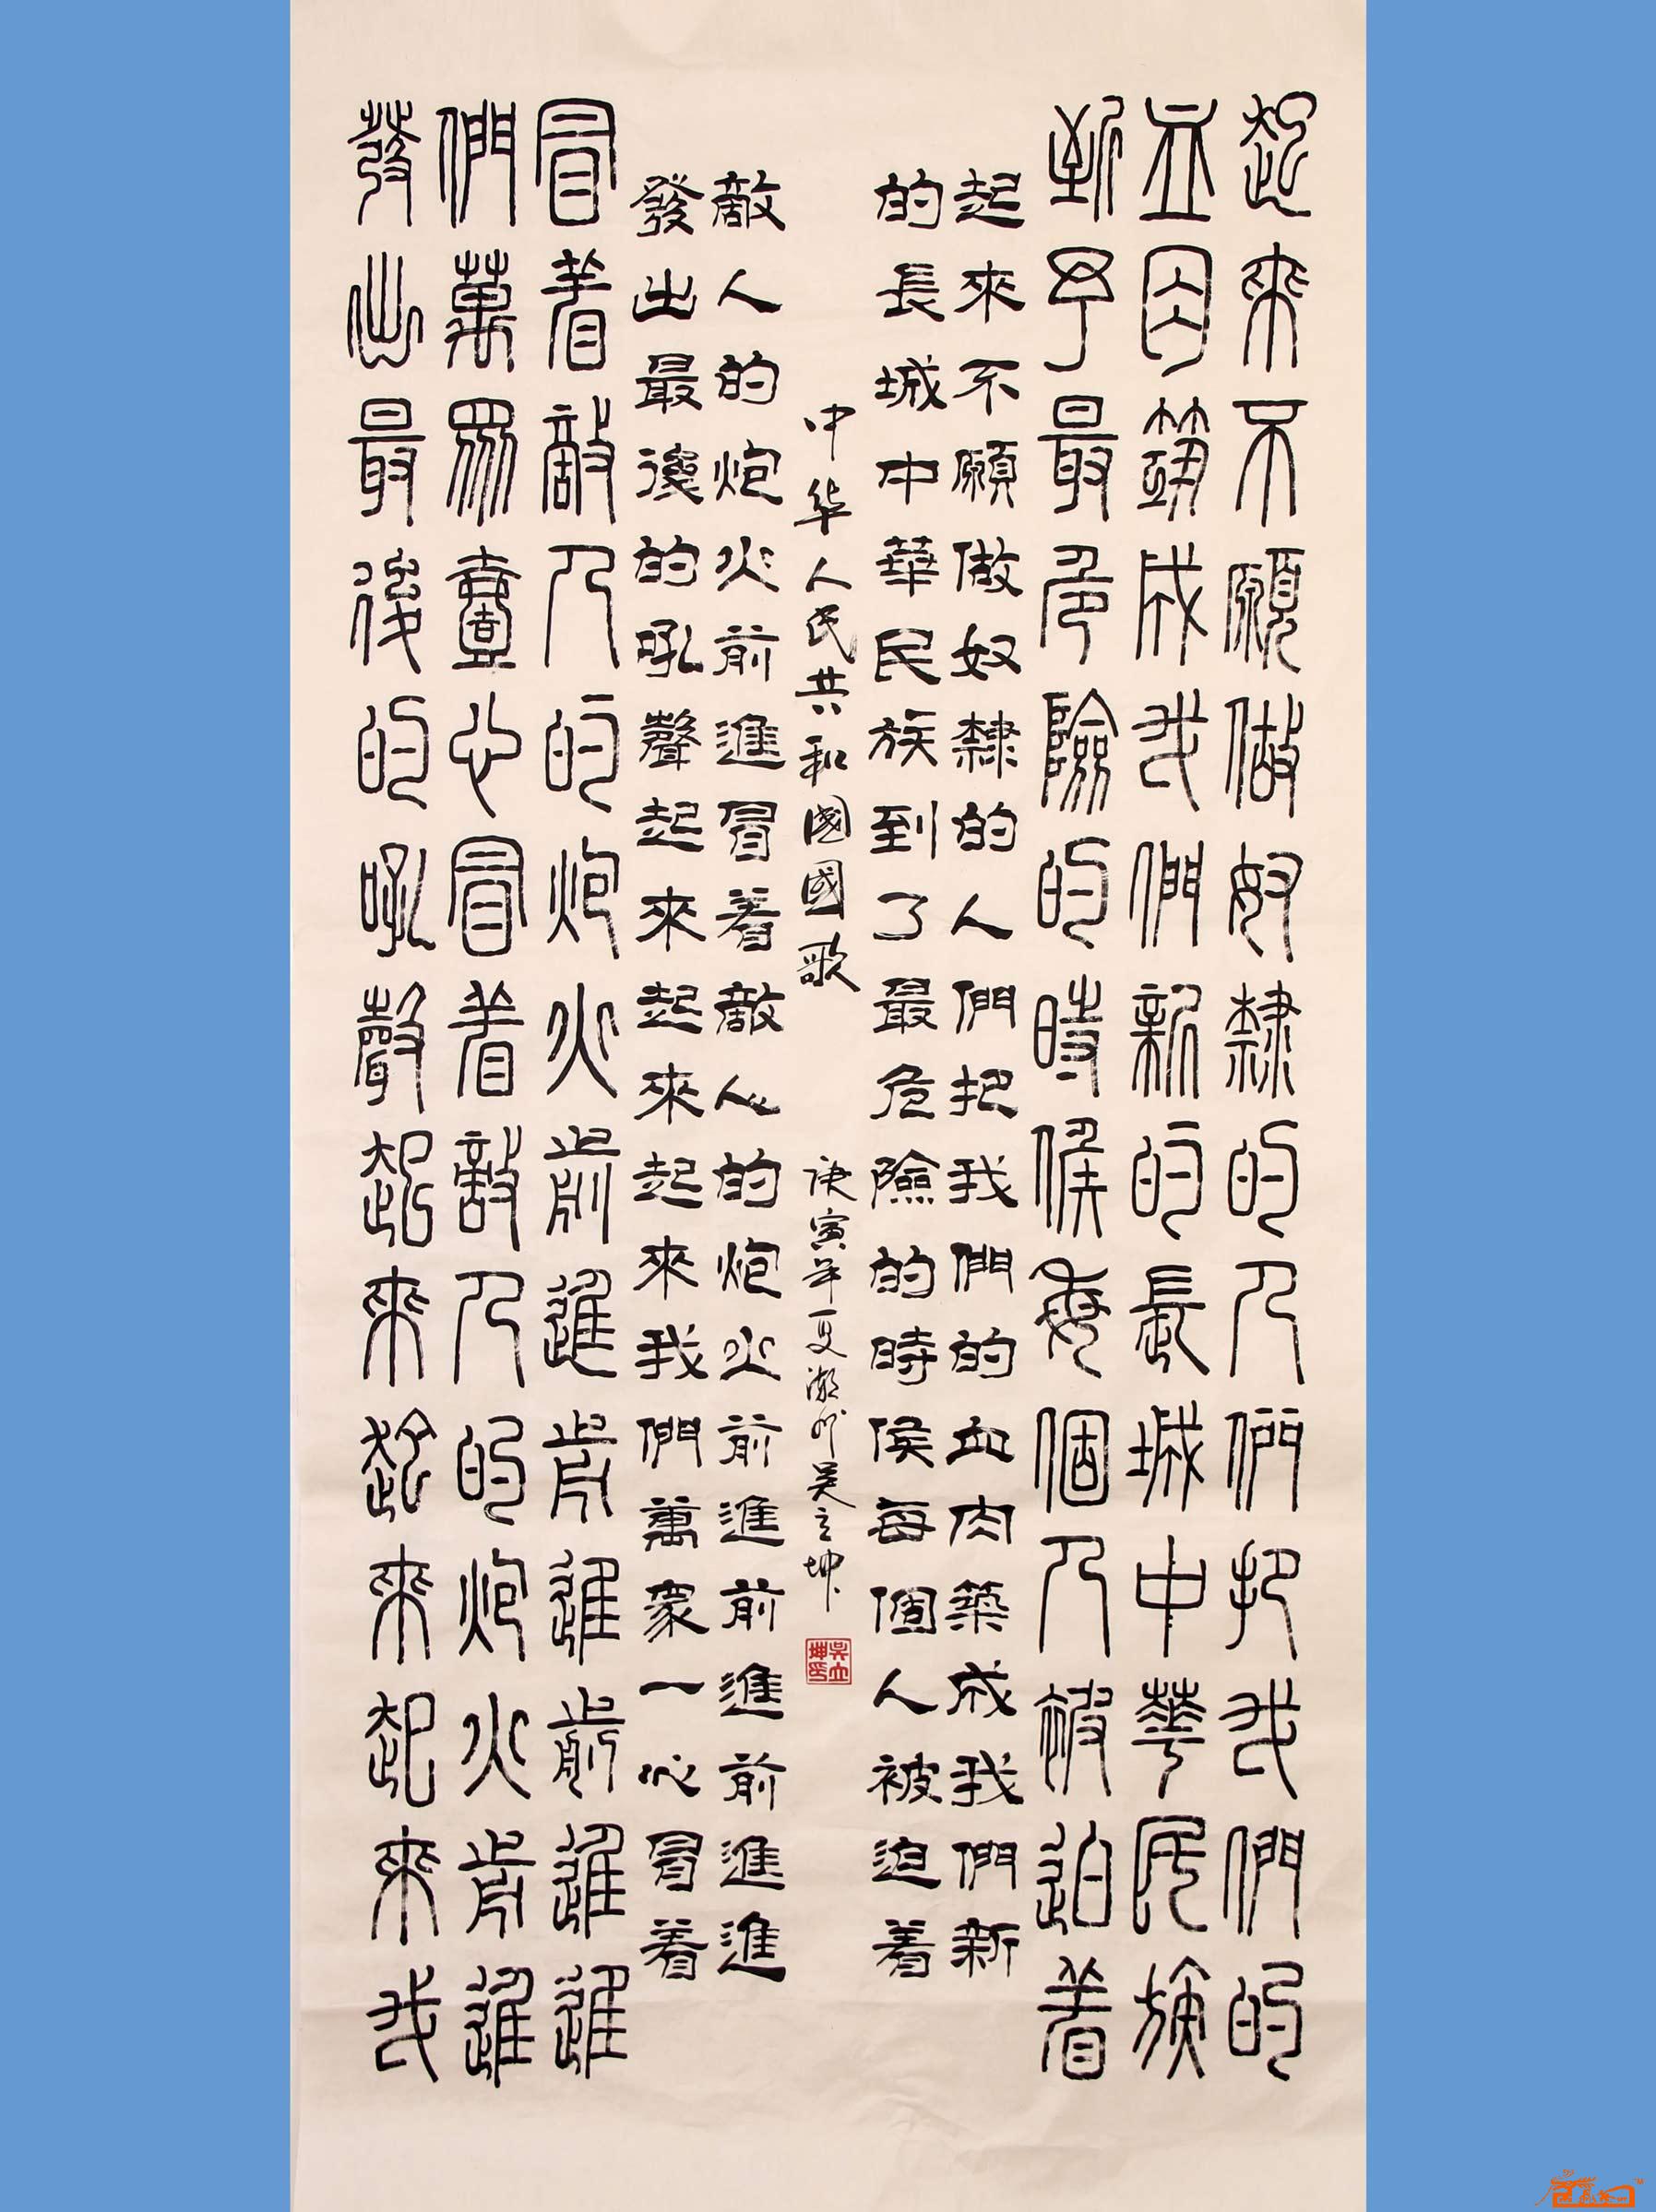 起來不願做奴隸的人們把我們的
血肉築成我們新的長城中華民族
到了最危險的時候每個人被迫着
起來不願做奴隸的人們把我們的血肉築成我們新
的長城中華民族到了最危險的時侯每個人被迫着
中华人民共和國國歌
庚寅年夏潮州吴立坤
吴立坤印
敵人的炮火前進冒着敵人的炮火前進前進前進進
發出最後的吼聲起來起來起來我們萬衆一心冒着
冒着敵人的炮火前進前進前進進
們萬眾壹心冒着敵人的炮火前進
發出最後的吼聲起來起來起來我